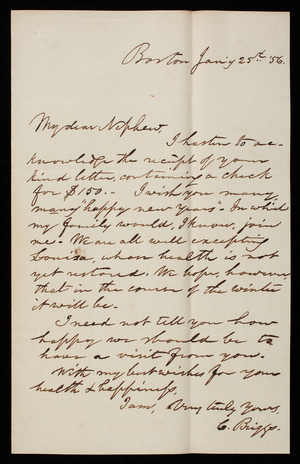 Boston Jan'y 25th '56.
My dear Nephew,
I hasten to ac-
knowledge the receipt of your
kind letter, containing a check
for $150.- I wish you many
many "happy new years". In which
my family would, I know, join
me. We are all well excepting
Louisa, whose health is not
yet restored. We hope, however,
that in the course of the winter
it will be.
I need not tell you how
happy we should be to
have a visit from you.
With my best wishes for your
health & happiness,
I am, Very truly yours,
C. Briggs.